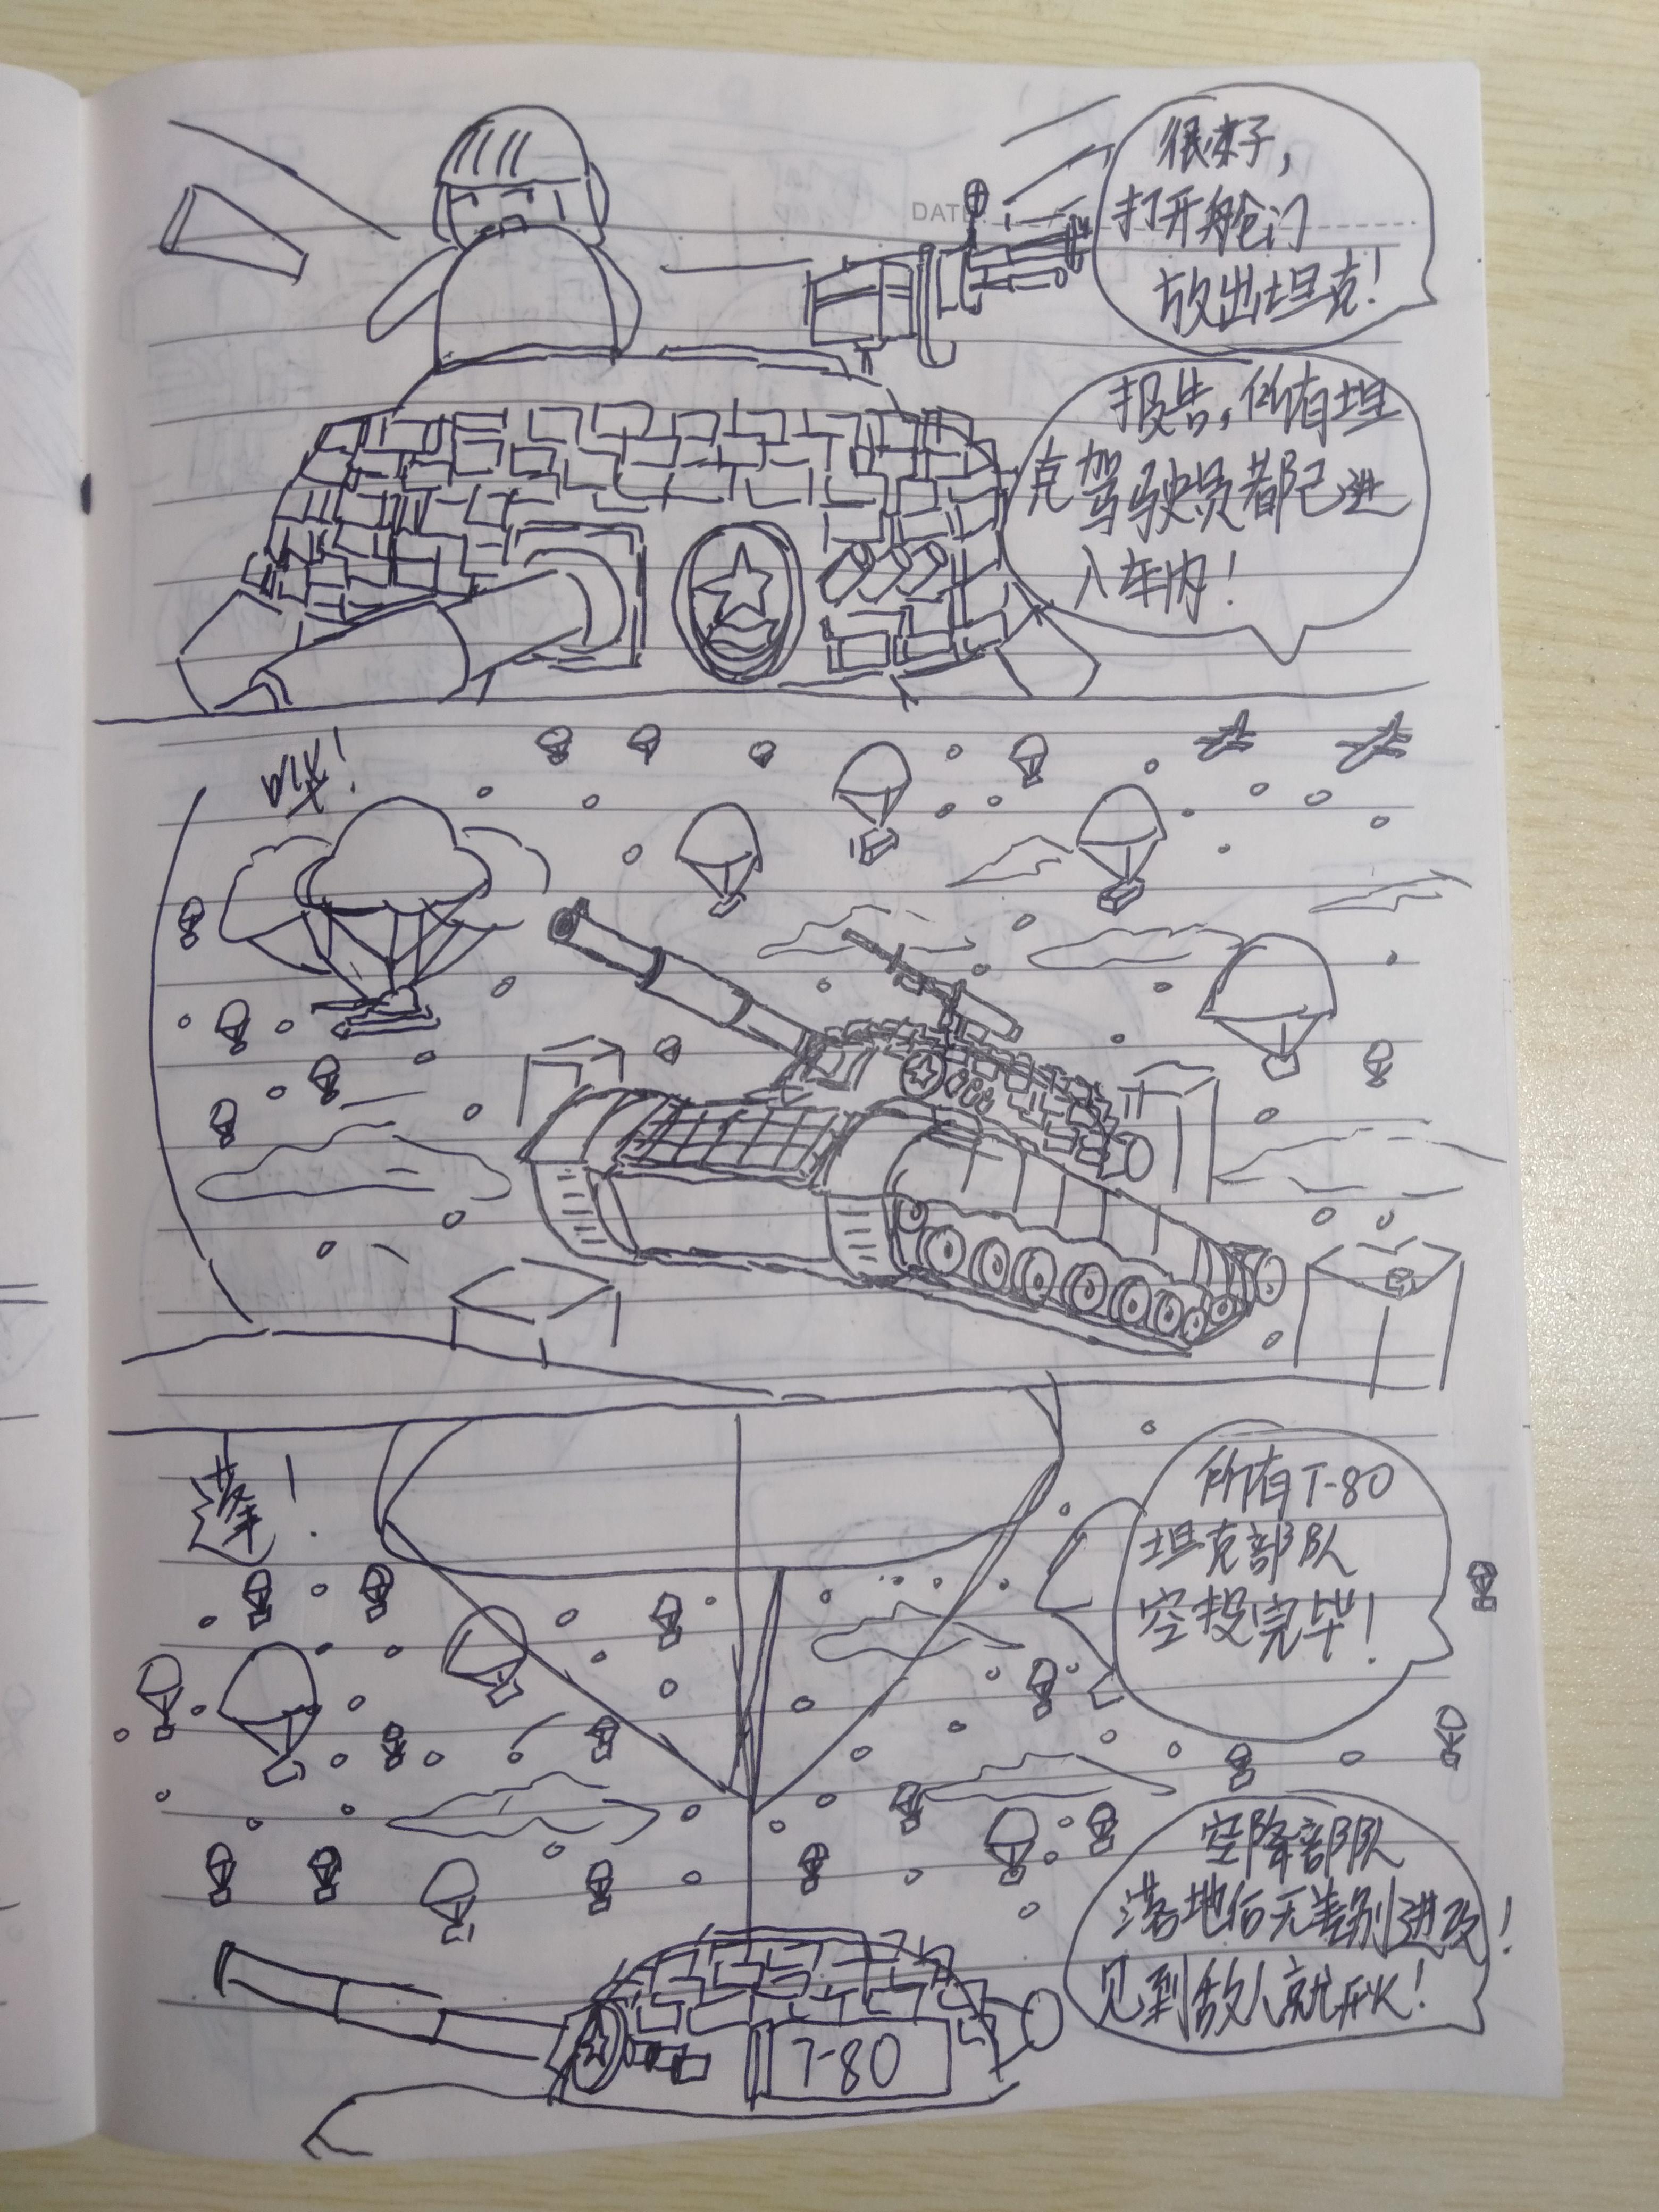 DATE
很好，
打开舱门
放出坦克！
报告，所有坦
克驾驶员都已进
入车内！
所有T-80
坦克部队
空投完毕！
空降部队
落地后无差别进攻！
见到敌人就开火！
T-80